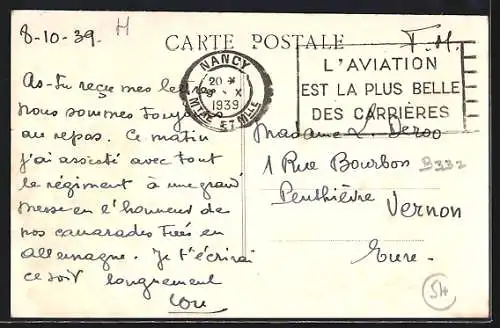 8-10-39. H
CARTE POSTALE
F. M.
NANCY
20 *
8 - X
1939
MTHE ET MLLE
L'AVIATION
EST LA PLUS BELLE
DES CARRIÈRES
As-tu reçu mes lettres
nous sommes toujours
au repos. Ce matin
j'ai assisté avec tout
le régiment à une grand
messe en l'honneur de
nos camarades tués en
Allemagne. Je t'écrirai
ce soir longuement
Madame L. Deroo
1 Rue Bourbon
B332
Penthièvre
Vernon
Eure.
54